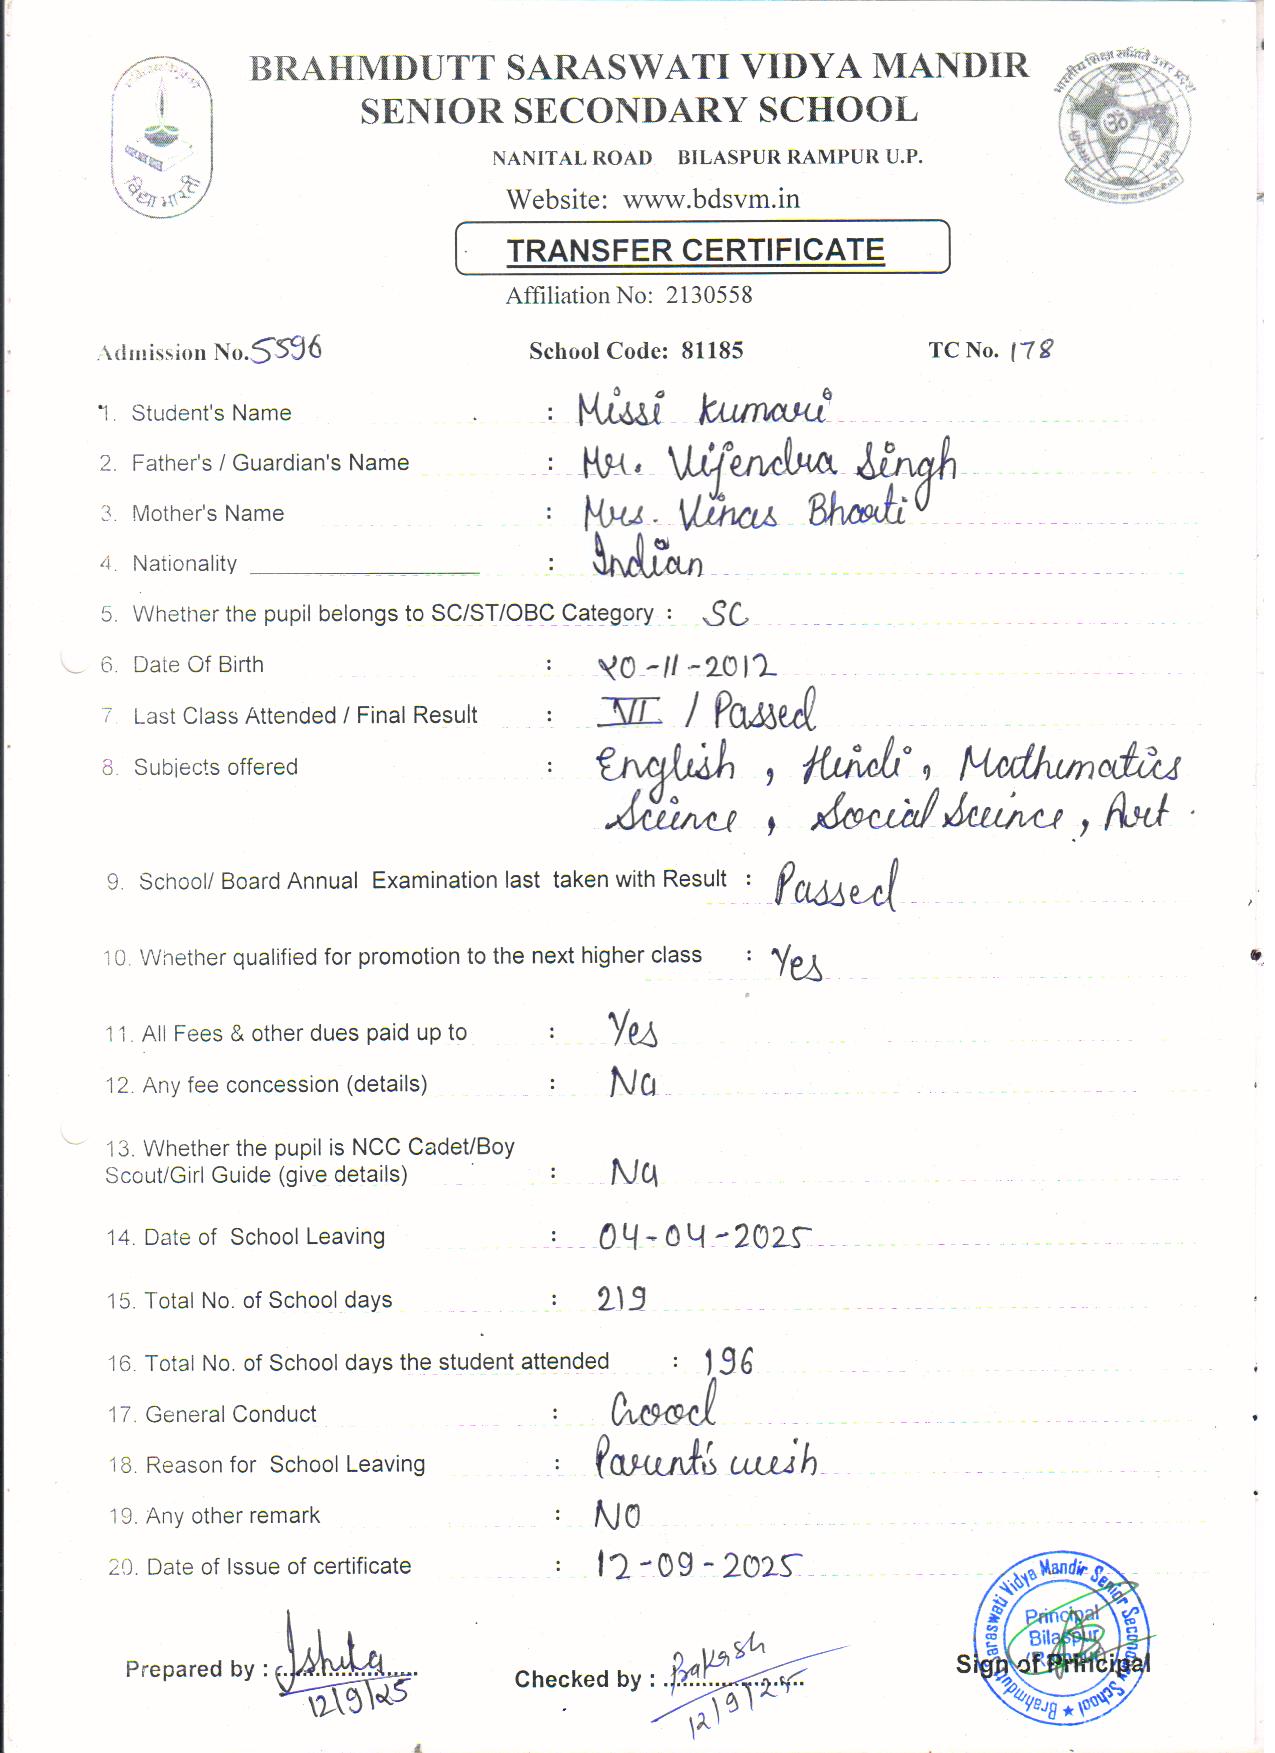 BRAHMDUTT SARASWATI VIDYA MANDIR
SENIOR SECONDARY SCHOOL
NANITAL ROAD BILASPUR RAMPUR U.P.
विद्या भारती
Website: www.bdsvm.in
TRANSFER CERTIFICATE
Affiliation No: 2130558
Admission No. 5596 School Code: 81185 TC No. 178
1. Student's Name : Missi Kumari
2. Father's / Guardian's Name : Mr. Vijendra Singh
3. Mother's Name : Mrs. Vinas Bharti
4. Nationality : Indian
5. Whether the pupil belongs to SC/ST/OBC Category : SC
6. Date Of Birth : -11-2012
7. Last Class Attended / Final Result : VI / Passed
8. Subjects offered : English, Hindi, Mathematics
Science, Social Science, Art.
9. School/ Board Annual Examination last taken with Result : Passed
10. Whether qualified for promotion to the next higher class : Yes
11. All Fees & other dues paid up to : Yes
12. Any fee concession (details) : Na
13. Whether the pupil is NCC Cadet/Boy
Scout/Girl Guide (give details) : Na
14. Date of School Leaving : 04-04-2025
15. Total No. of School days : 219
16. Total No. of School days the student attended : 196
17. General Conduct : Good
18. Reason for School Leaving : Parent's wish
19. Any other remark : NO
20. Date of Issue of certificate : 12-09-2025
Brahmdutt Saraswati Vidya Mandir Senior Secondary School
Principal
Bilaspur
Prepared by : Ishita Checked by : Sign of Principal
12/9/25 12/9/25